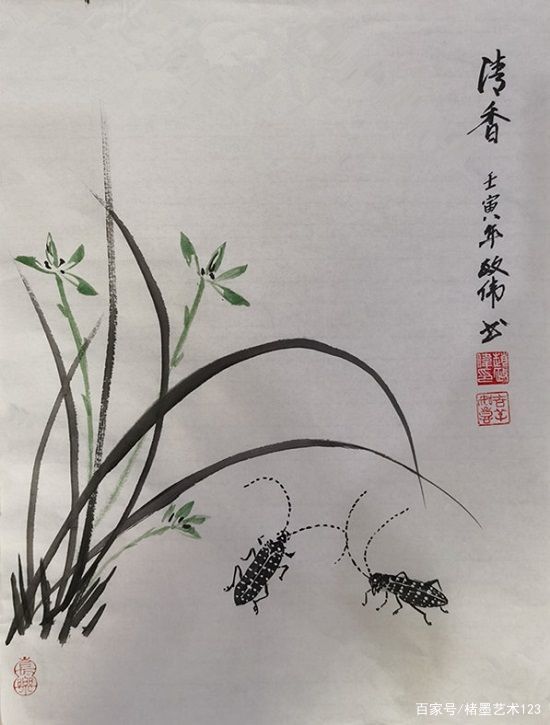 清香
壬寅年敬伟书
百家号/楮墨艺术123